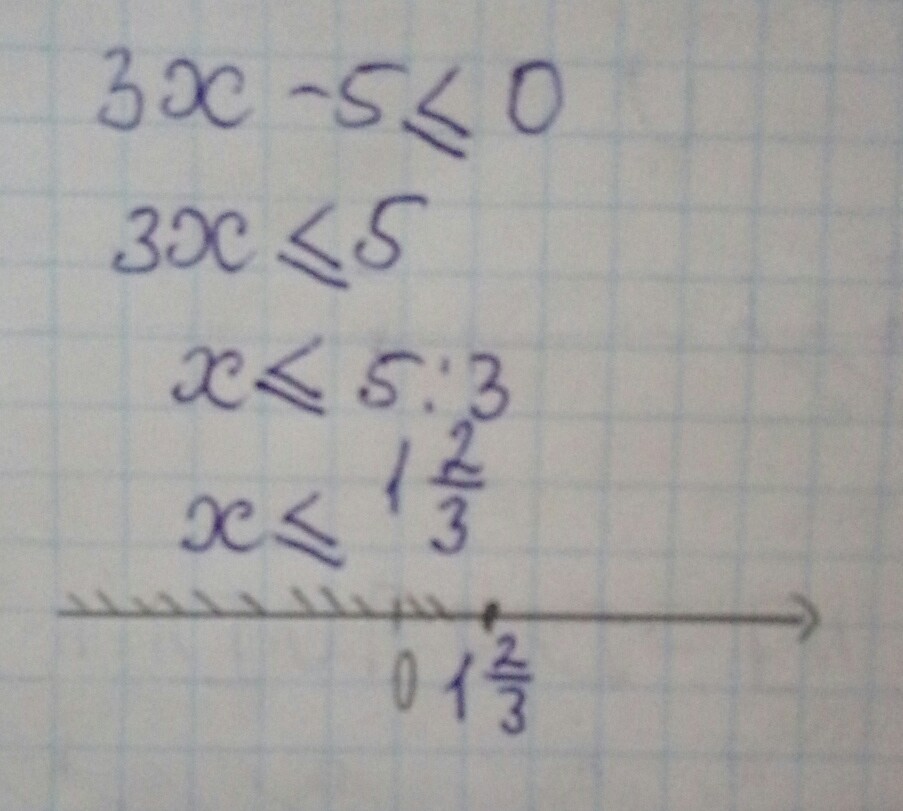 3x - 5 ≤ 0
3x ≤ 5
x ≤ 5 : 3
x ≤ 1 2/3
0 1 2/3